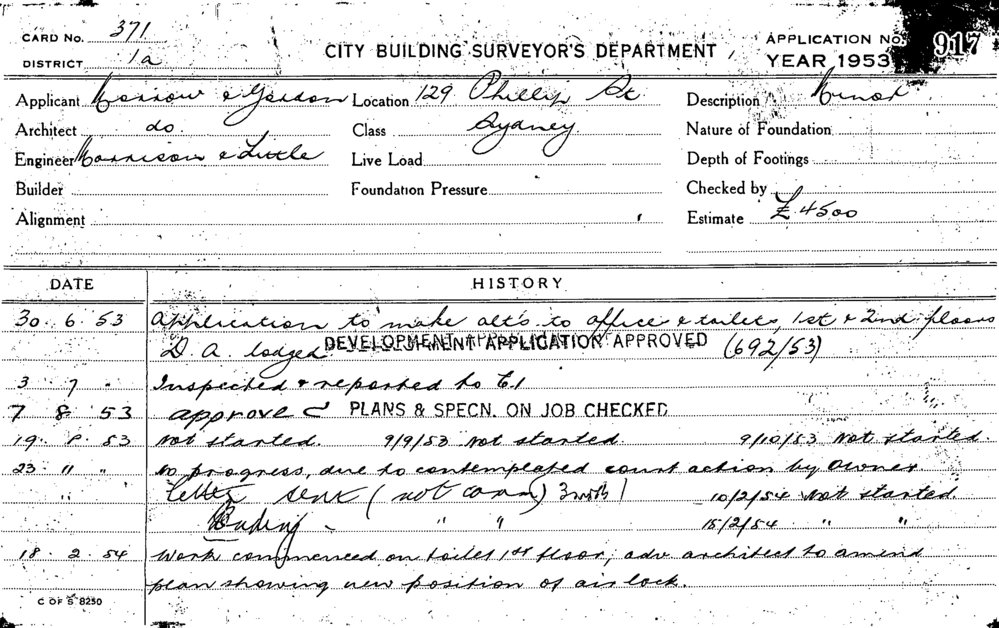 CARD No. 371
DISTRICT 1a
CITY BUILDING SURVEYOR'S DEPARTMENT
APPLICATION No. 917
YEAR 1953
Applicant Morrow & Gordon Location 129 Phillip St. Description Minor
Architect do. Class Sydney Nature of Foundation
Engineer Morrison & Little Live Load Depth of Footings
Builder Foundation Pressure Checked by
Alignment Estimate £4500
DATE HISTORY
30. 6. 53 Application to make alt's to office & toilets, 1st & 2nd floors
D. A. lodged DEVELOPMENT APPLICATION APPROVED (692/53)
3 7 " Inspected & reported to C.I
7 8 53 approved PLANS & SPECN. ON JOB CHECKED
19. 8. 53 Not started. 9/9/53 Not started. 9/10/53 Not started.
23. 11 " No progress, due to contemplated court action by owner
" Letter sent (not comm) 3 mth 10/2/54 Not started.
" " 15/2/54 " "
18. 2. 54 Work commenced on toilet 1st floor, adv. architect to amend
plan showing new position of air lock.
C OF S 8250